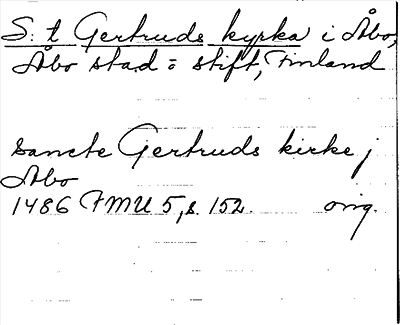 S:t Gertruds kyrka i Åbo,
Åbo stad = stift, Finland
sancte Gertruds kirke j
Åbo
1486 FMU 5, s. 152. orig.